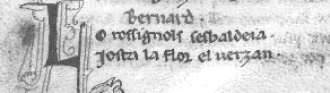 Bernard.
Lo rossignols sesbaldeia.
Josta la flor el uerzan.